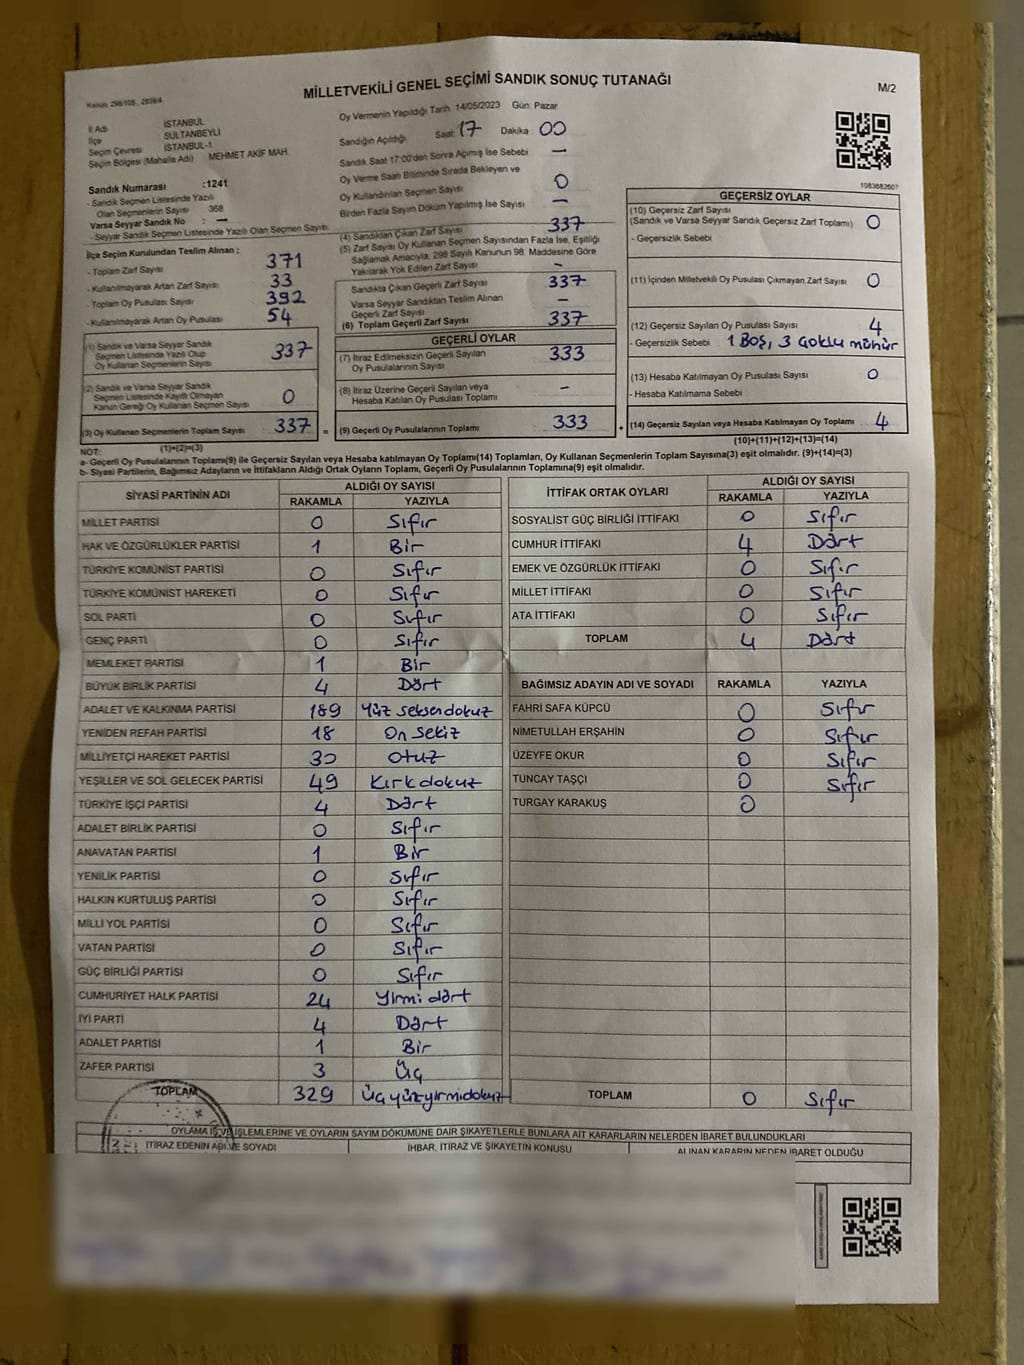 Kanun, 298/105 , 2839/4
MİLLETVEKİLİ GENEL SEÇİMİ SANDIK SONUÇ TUTANAĞI
M/2
İl Adı İSTANBUL
İlçe SULTANBEYLİ
Seçim Çevresi İSTANBUL-1
Seçim Bölgesi (Mahalle Adı) MEHMET AKİF MAH.
Sandık Numarası :1241
- Sandık Seçmen Listesinde Yazılı
Olan Seçmenlerin Sayısı 368
Varsa Seyyar Sandık No : —
- Seyyar Sandık Seçmen Listesinde Yazılı Olan Seçmen Sayısı
Oy Vermenin Yapıldığı Tarih 14/05/2023 Gün Pazar
Sandığın Açıldığı Saat 17 Dakika 00
Sandık Saat 17:00'den Sonra Açımış İse Sebebi —
Oy Verme Saati Bitiminde Sırada Bekleyen ve
Oy Kullandırılan Seçmen Sayısı 0
Birden Fazla Sayım Döküm Yapılmış İse Sayısı —
İlçe Seçim Kurulundan Teslim Alınan :
- Toplam Zarf Sayısı 371
- Kullanılmayarak Artan Zarf Sayısı 33
- Toplam Oy Pusulası Sayısı 392
- Kullanılmayarak Artan Oy Pusulası 54
(1) Sandık ve Varsa Seyyar Sandık
Seçmen Listesinde Yazılı Olup
Oy Kullanan Seçmenlerin Sayısı 337
(2) Sandık ve Varsa Seyyar Sandık
Seçmen Listesinde Kayıtlı Olmayan
Kanun Gereği Oy Kullanan Seçmen Sayısı 0
(3) Oy Kullanan Seçmenlerin Toplam Sayısı 337 =
(1)+(2)=(3)
(4) Sandıktan Çıkan Zarf Sayısı 337
(5) Zarf Sayısı Oy Kullanan Seçmen Sayısından Fazla İse, Eşitliği
Sağlamak Amacıyla, 298 Sayılı Kanunun 98. Maddesine Göre
Yakılarak Yok Edilen Zarf Sayısı —
Sandıkta Çıkan Geçerli Zarf Sayısı 337
Varsa Seyyar Sandıktan Teslim Alınan
Geçerli Zarf Sayısı —
(6) Toplam Geçerli Zarf Sayısı 337
GEÇERLİ OYLAR
(7) İtiraz Edilmeksizin Geçerli Sayılan
Oy Pusulalarının Sayısı 333
(8) İtiraz Üzerine Geçerli Sayılan veya
Hesaba Katılan Oy Pusulası Toplamı —
(9) Geçerli Oy Pusulalarının Toplamı 333 +
1083682607
GEÇERSİZ OYLAR
(10) Geçersiz Zarf Sayısı
(Sandık ve Varsa Seyyar Sandık Geçersiz Zarf Toplamı) 0
- Geçersizlik Sebebi
(11) İçinden Milletvekili Oy Pusulası Çıkmayan Zarf Sayısı 0
(12) Geçersiz Sayılan Oy Pusulası Sayısı 4
- Geçersizlik Sebebi 1 Boş, 3 Çoklu mühür
(13) Hesaba Katılmayan Oy Pusulası Sayısı 0
- Hesaba Katılmama Sebebi
(14) Geçersiz Sayılan veya Hesaba Katılmayan Oy Toplamı 4
(10)+(11)+(12)+(13)=(14)
NOT:
a- Geçerli Oy Pusulalarının Toplamı(9) ile Geçersiz Sayılan veya Hesaba Katılmayan Oy Toplamı(14) Toplamları, Oy Kullanan Seçmenlerin Toplam Sayısına(3) eşit olmalıdır. (9)+(14)=(3)
b- Siyasi Partilerin, Bağımsız Adayların ve İttifakların Aldığı Ortak Oyların Toplamı, Geçerli Oy Pusulalarının Toplamına(9) eşit olmalıdır.
SİYASİ PARTİNİN ADI ALDIĞI OY SAYISI
RAKAMLA YAZIYLA
MİLLET PARTİSİ 0 Sıfır
HAK VE ÖZGÜRLÜKLER PARTİSİ 1 Bir
TÜRKİYE KOMÜNİST PARTİSİ 0 Sıfır
TÜRKİYE KOMÜNİST HAREKETİ 0 Sıfır
SOL PARTİ 0 Sıfır
GENÇ PARTİ 0 Sıfır
MEMLEKET PARTİSİ 1 Bir
BÜYÜK BİRLİK PARTİSİ 4 Dört
ADALET VE KALKINMA PARTİSİ 189 Yüz seksendokuz
YENİDEN REFAH PARTİSİ 18 On sekiz
MİLLİYETÇİ HAREKET PARTİSİ 30 Otuz
YEŞİLLER VE SOL GELECEK PARTİSİ 49 Kırkdokuz
TÜRKİYE İŞÇİ PARTİSİ 4 Dört
ADALET BİRLİK PARTİSİ 0 Sıfır
ANAVATAN PARTİSİ 1 Bir
YENİLİK PARTİSİ 0 Sıfır
HALKIN KURTULUŞ PARTİSİ 0 Sıfır
MİLLİ YOL PARTİSİ 0 Sıfır
VATAN PARTİSİ 0 Sıfır
GÜÇ BİRLİĞİ PARTİSİ 0 Sıfır
CUMHURİYET HALK PARTİSİ 24 Yirmi dört
İYİ PARTİ 4 Dört
ADALET PARTİSİ 1 Bir
ZAFER PARTİSİ 3 Üç
TOPLAM 329 Üçyüzyirmidokuz
İTTİFAK ORTAK OYLARI ALDIĞI OY SAYISI
RAKAMLA YAZIYLA
SOSYALİST GÜÇ BİRLİĞİ İTTİFAKI 0 Sıfır
CUMHUR İTTİFAKI 4 Dört
EMEK VE ÖZGÜRLÜK İTTİFAKI 0 Sıfır
MİLLET İTTİFAKI 0 Sıfır
ATA İTTİFAKI 0 Sıfır
TOPLAM 4 Dört
BAĞIMSIZ ADAYIN ADI VE SOYADI RAKAMLA YAZIYLA
FAHRİ SAFA KÜPCÜ 0 Sıfır
NİMETULLAH ERŞAHİN 0 Sıfır
ÜZEYFE OKUR 0 Sıfır
TUNCAY TAŞÇI 0 Sıfır
TURGAY KARAKUŞ 0
TOPLAM 0 Sıfır
OYLAMA İŞ VE İŞLEMLERİNE VE OYLARIN SAYIM DÖKÜMÜNE DAİR ŞİKAYETLERLE BUNLARA AİT KARARLARIN NELERDEN İBARET BULUNDUKLARI
İTİRAZ EDENİN ADI VE SOYADI İHBAR, İTİRAZ VE ŞİKAYETİN KONUSU ALINAN KARARIN NEDEN İBARET OLDUĞU